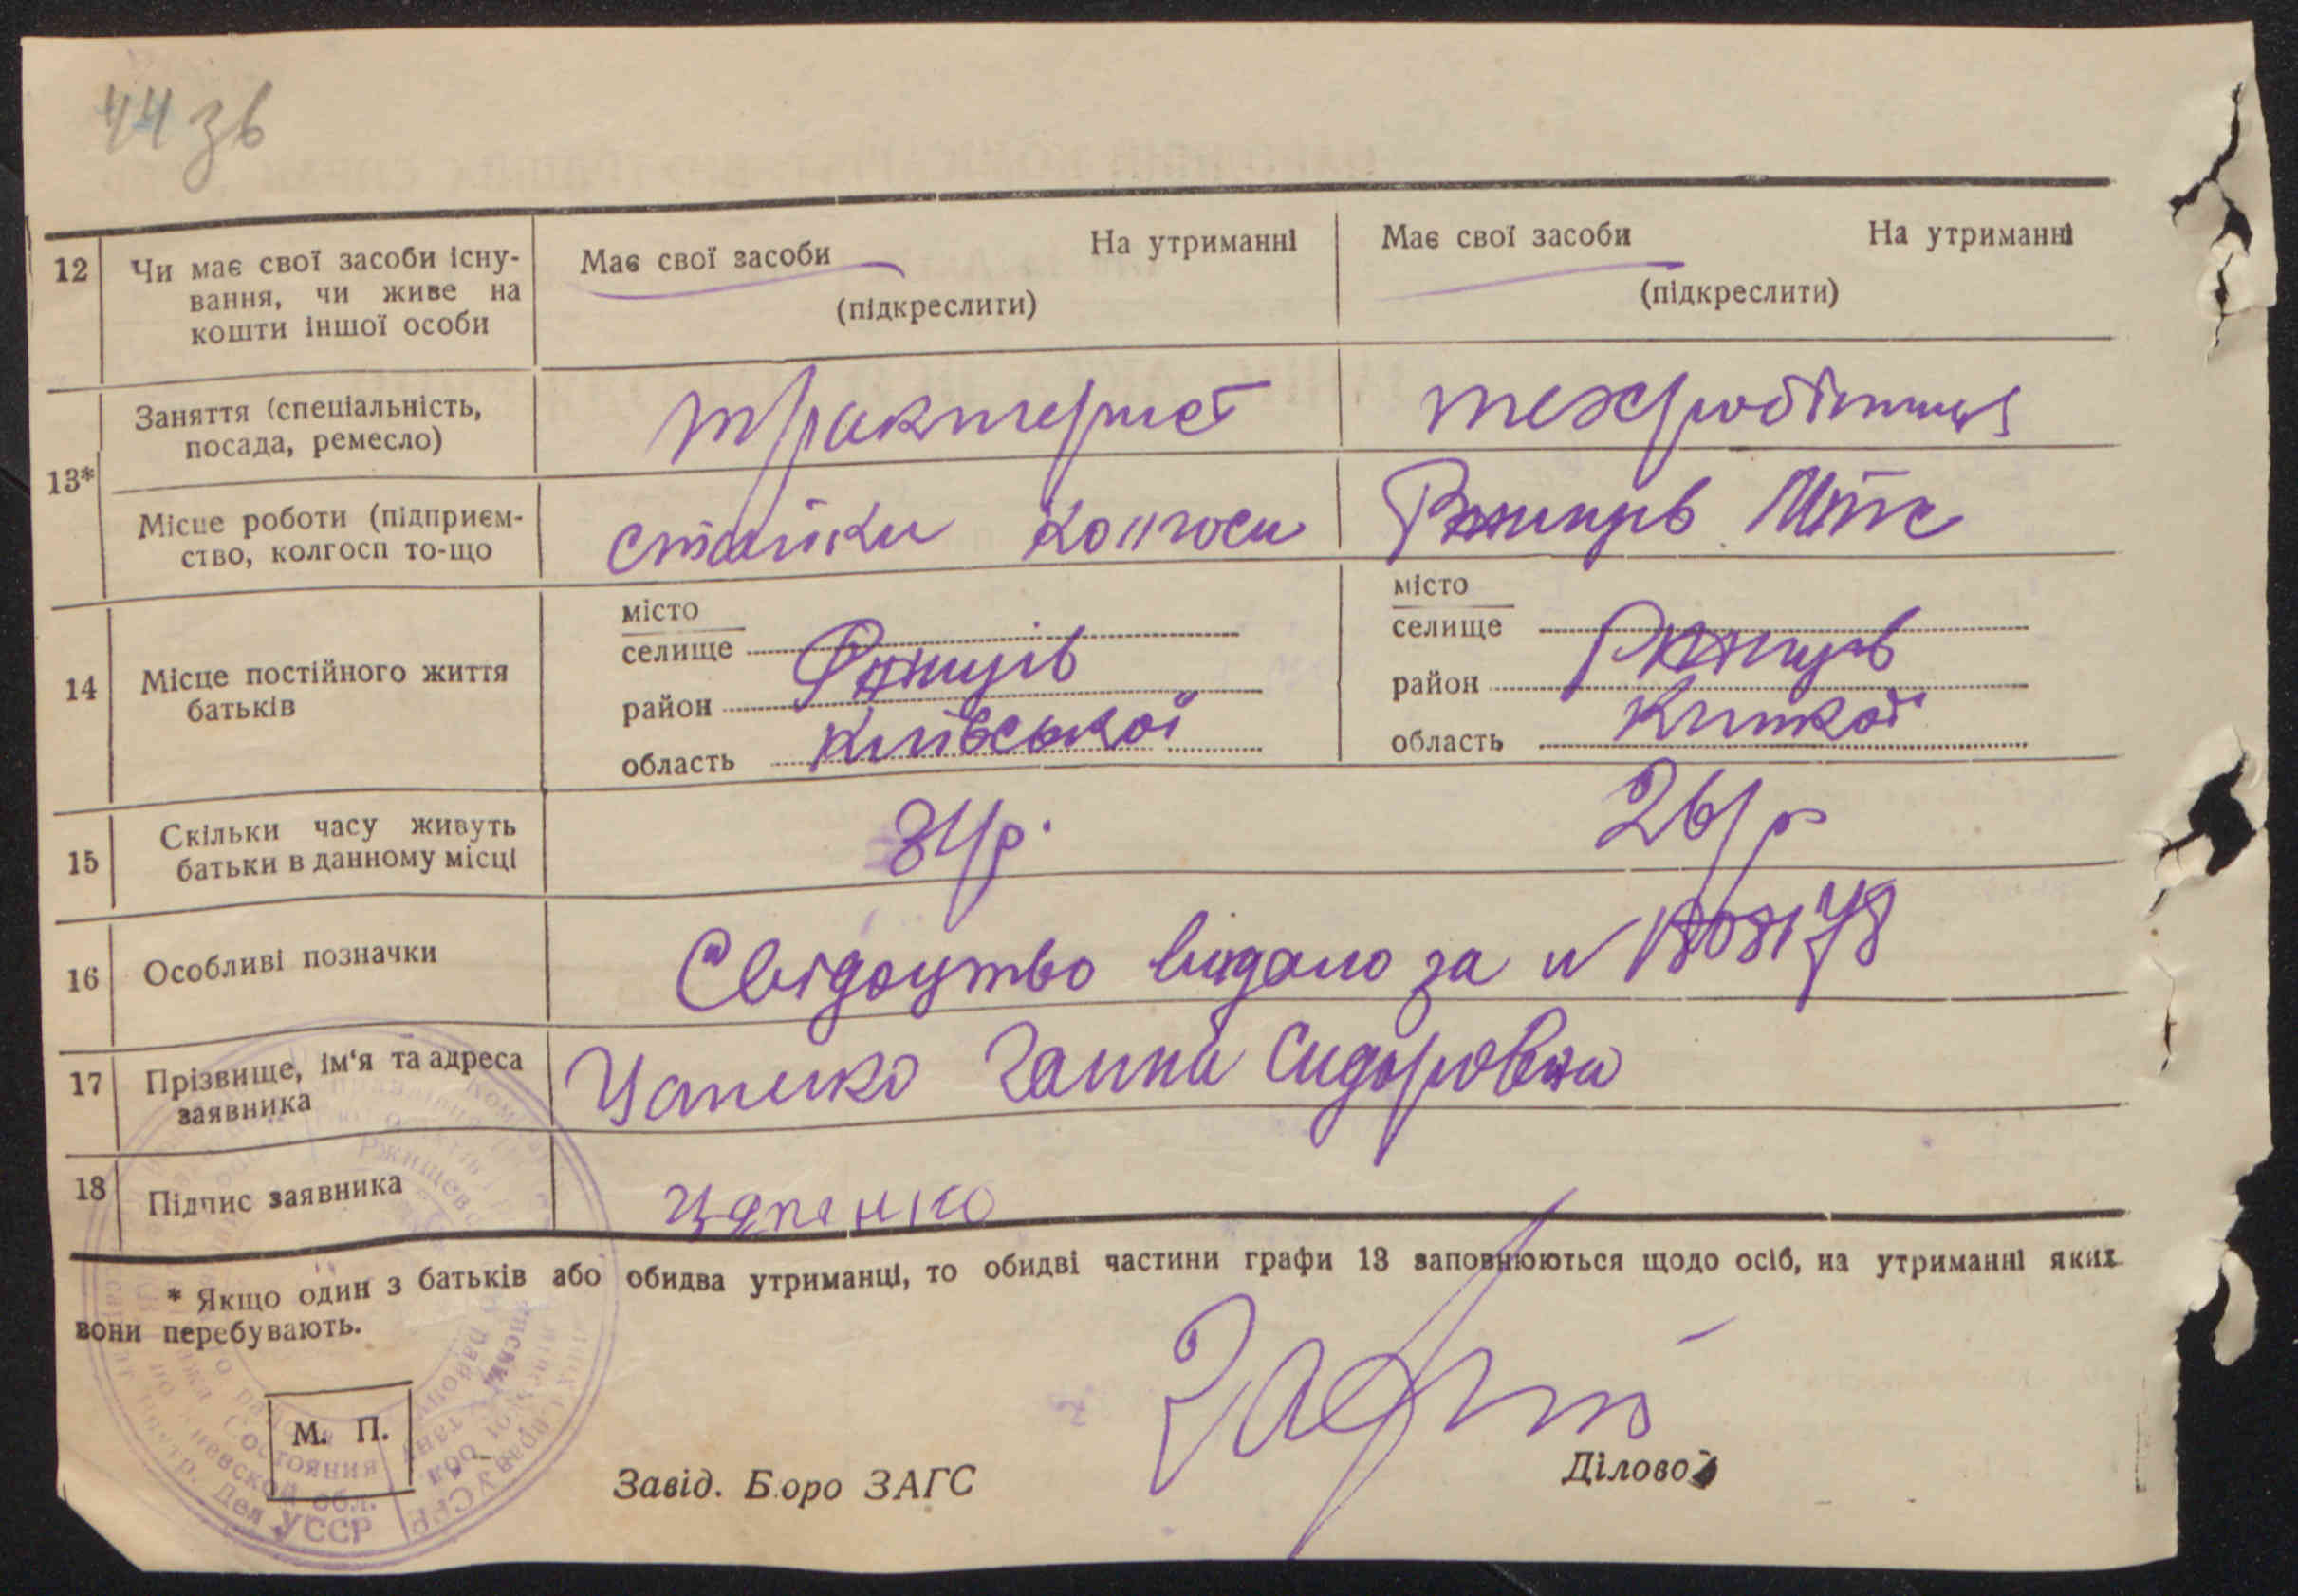 44 зв
12 Чи має свої засоби існу-
вання, чи живе на
кошти іншої особи
Має свої засоби На утриманні
(підкреслити)
Має свої засоби На утриманні
(підкреслити)
13*
Заняття (спеціальність,
посада, ремесло)
тракторист
техробітниця
Місце роботи (підприєм-
ство, колгосп то-що
стайки колгосп
Ржищів Мтс
14 Місце постійного життя
батьків
місто
селище
район Ржищів
область Київської
місто
селище
район Ржищів
область
15 Скільки часу живуть
батьки в данному місці
31/р.
26/р
16 Особливі позначки
Свідоцтво видано за №
17 Прізвище, ім'я та адреса
заявника
Цапенко Ганна Сидоровна
18 Підпис заявника
Цяпенко
* Якщо один з батьків або обидва утриманці, то обидві частини графи 13 заповнюються щодо осіб, на утриманні яких
вони перебувають.
М. П.
Завід. Бюро ЗАГС
Діловод
УССР